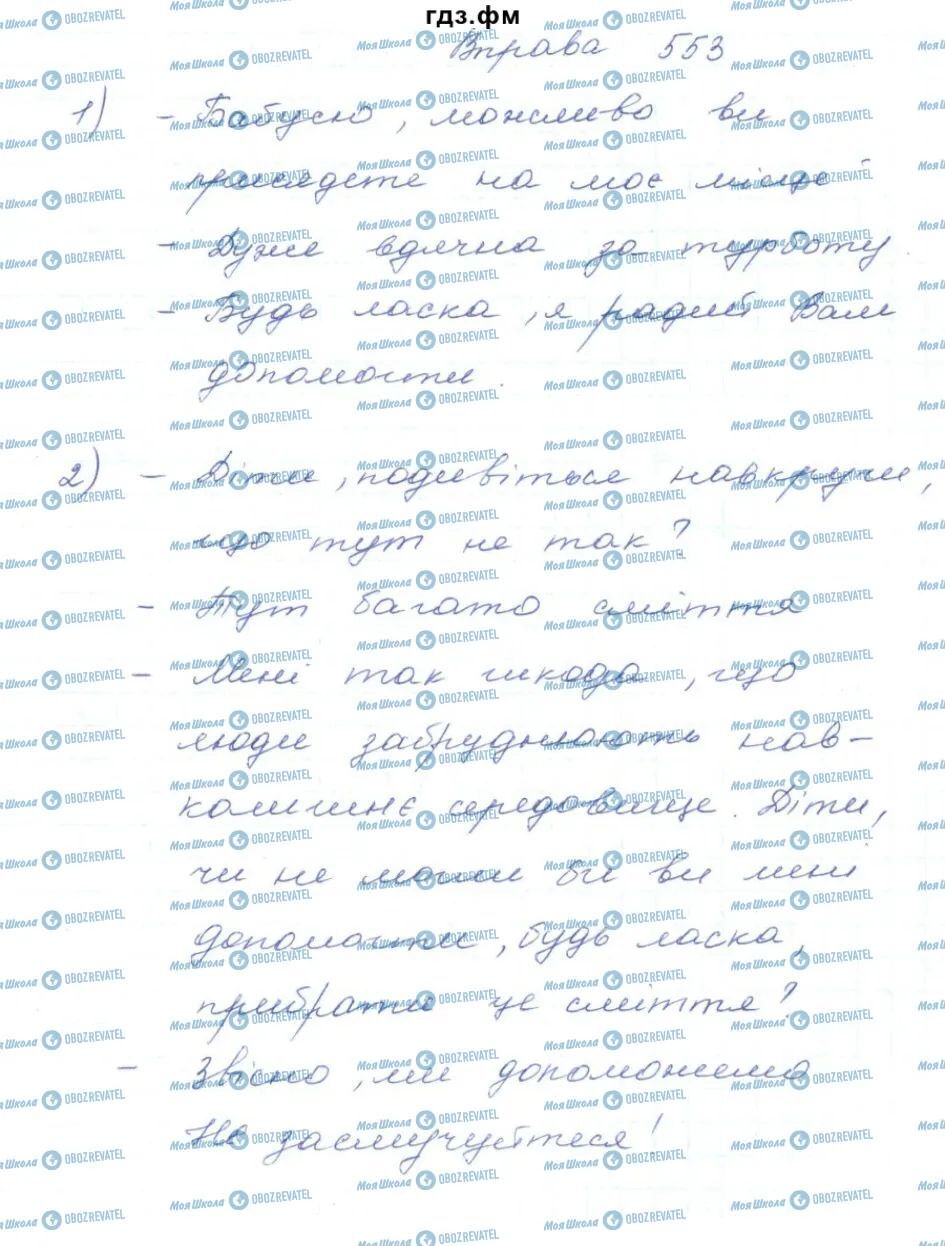 гдз.фм
Вправа 553
1) - Бабусю, можливо ви
присядете на моє місце
- Дуже вдячна за турботу
- Будь ласка, я радий Вам
допомогти.
2) - Діти, подивіться навкруги,
що тут не так?
- Тут багато сміття
- Мені так шкода, що
люди забруднюють нав-
колишнє середовище. Діти,
чи не могли би ви мені
допомогти, будь ласка,
прибрати це сміття?
- Звісно, ми допоможемо
Не засмучуйтеся!